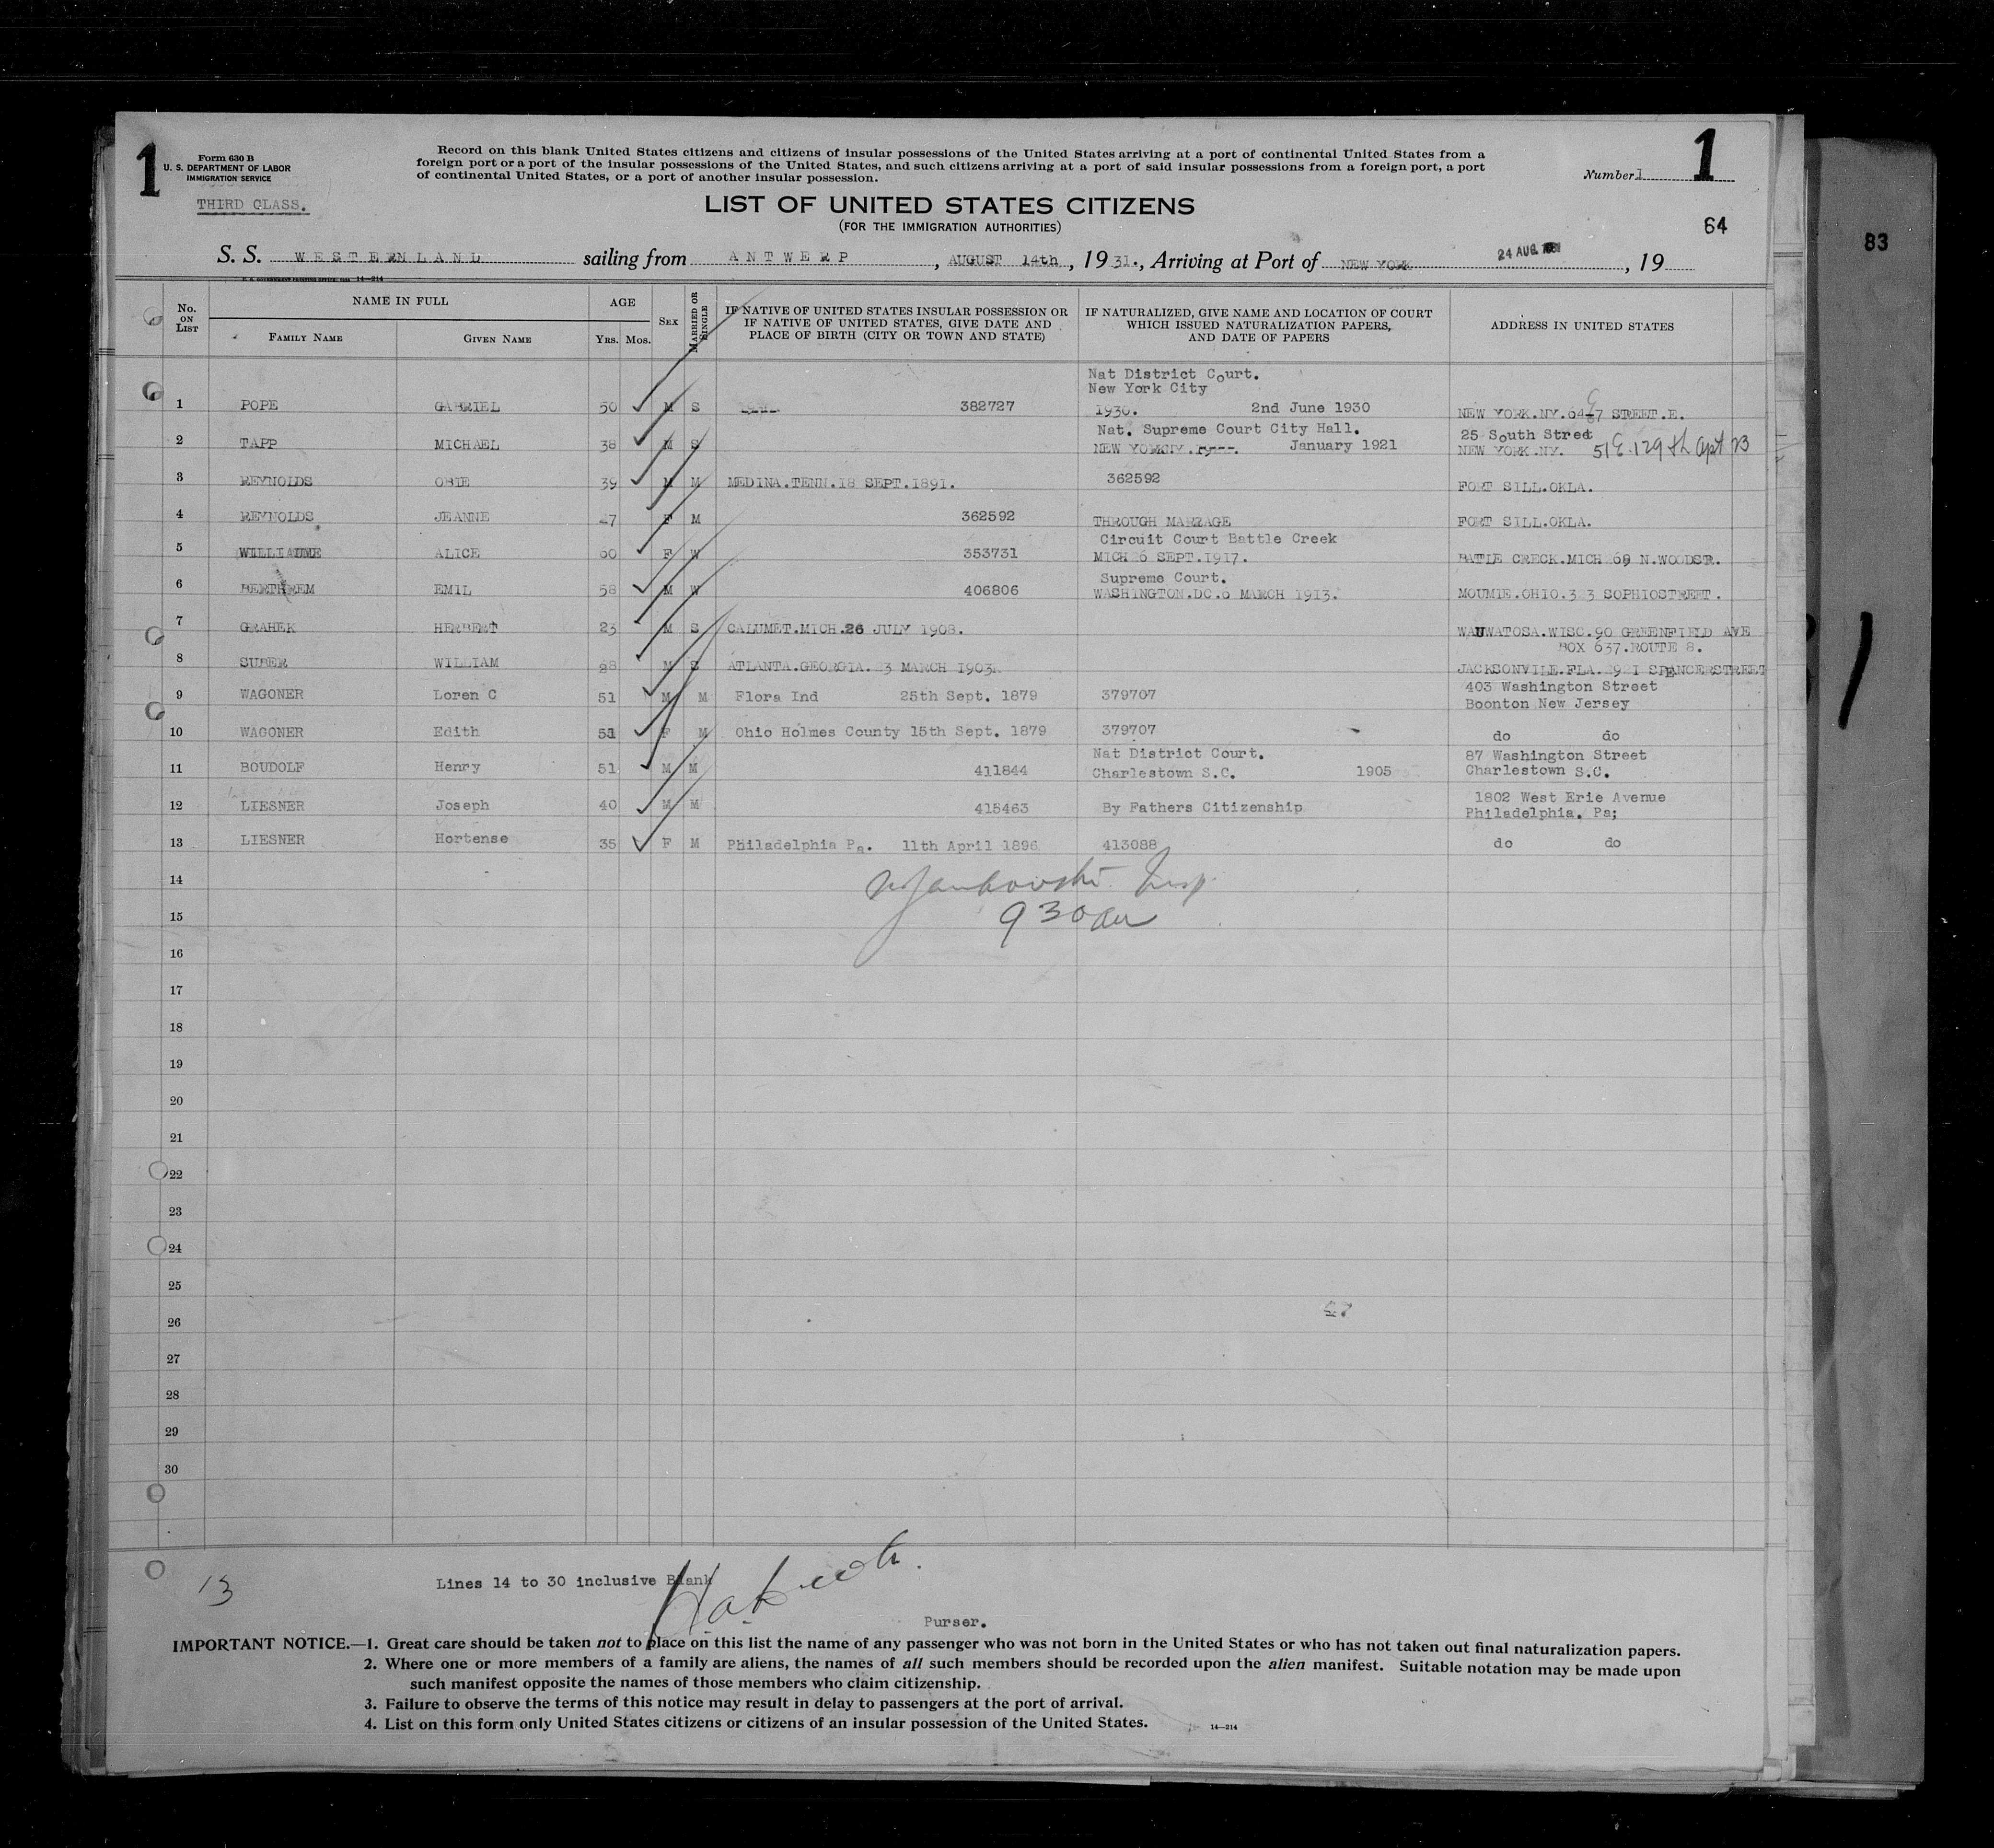 1
Form 630 B
U. S. DEPARTMENT OF LABOR
IMMIGRATION SERVICE
THIRD CLASS.
Record on this blank United States citizens and citizens of insular possessions of the United States arriving at a port of continental United States from a
foreign port or a port of the insular possessions of the United States, and such citizens arriving at a port of said insular possessions from a foreign port, a port
of continental United States, or a port of another insular possession.
Number 1
1
LIST OF UNITED STATES CITIZENS
(FOR THE IMMIGRATION AUTHORITIES)
64
83
S. S. WESTERNLAND sailing from ANTWERP, AUGUST 14th, 1931., Arriving at Port of NEW YORK 24 AUG 1931, 19
14—214
No. ON LIST
NAME IN FULL
FAMILY NAME
GIVEN NAME
AGE
YRS. MOS.
SEX
MARRIED OR SINGLE
IF NATIVE OF UNITED STATES INSULAR POSSESSION OR
IF NATIVE OF UNITED STATES, GIVE DATE AND
PLACE OF BIRTH (CITY OR TOWN AND STATE)
IF NATURALIZED, GIVE NAME AND LOCATION OF COURT
WHICH ISSUED NATURALIZATION PAPERS,
AND DATE OF PAPERS
ADDRESS IN UNITED STATES
Nat District Court.
New York City
1 POPE GABRIEL 50 M S 382727 1930. 2nd June 1930 NEW YORK.NY. STREET.E.
Nat. Supreme Court City Hall. 25 South Street
2 TAPP MICHAEL 38 M S NEW YORK January 1921 NEW YORK.NY. 51 E. 129th Apt 23
3 REYNOLDS OBIE 39 M M MEDINA.TENN.18 SEPT.1891. 362592 FORT SILL.OKLA.
4 REYNOLDS JEANNE 47 F M 362592 THROUGH MARRAGE FORT SILL.OKLA.
Circuit Court Battle Creek
5 WILLIAUME ALICE 60 F W 353731 MICH 6 SEPT.1917. BATLE CRECK.MICH 69 N.WOODSTR.
Supreme Court.
6 BERTHREM EMIL 58 M W 406806 WASHINGTON.DC.6 MARCH 1913. MOUMIE.OHIO.323 SOPHIOSTREET.
7 GRAHEK HERBERT 23 M S CALUMET.MICH.26 JULY 1908. WAUWATOSA.WISC.90 GREENFIELD AVE
BOX 637.ROUTE 8.
8 SUBER WILLIAM 28 M S ATLANTA.GEORGIA. 3 MARCH 1903. JACKSONVILE.FLA. 2921 SPENCERSTREET
9 WAGONER Loren C 51 M M Flora Ind 25th Sept. 1879 379707 403 Washington Street
Boonton New Jersey
10 WAGONER Edith 51 F M Ohio Holmes County 15th Sept. 1879 379707 do do
Nat District Court. 87 Washington Street
11 BOUDOLF Henry 51 M M 411844 Charlestown S.C. 1905 Charlestown S.C.
12 LIESNER Joseph 40 M M 415463 By Fathers Citizenship 1802 West Erie Avenue
Philadelphia. Pa;
13 LIESNER Hortense 35 F M Philadelphia Pa. 11th April 1896 413088 do do
14
Insp
15
930am
16
17
18
19
20
21
22
23
24
25
26
27
28
29
30
13
Lines 14 to 30 inclusive Blank
Purser.
IMPORTANT NOTICE.—1. Great care should be taken not to place on this list the name of any passenger who was not born in the United States or who has not taken out final naturalization papers.
2. Where one or more members of a family are aliens, the names of all such members should be recorded upon the alien manifest. Suitable notation may be made upon
such manifest opposite the names of those members who claim citizenship.
3. Failure to observe the terms of this notice may result in delay to passengers at the port of arrival.
4. List on this form only United States citizens or citizens of an insular possession of the United States.
14—214